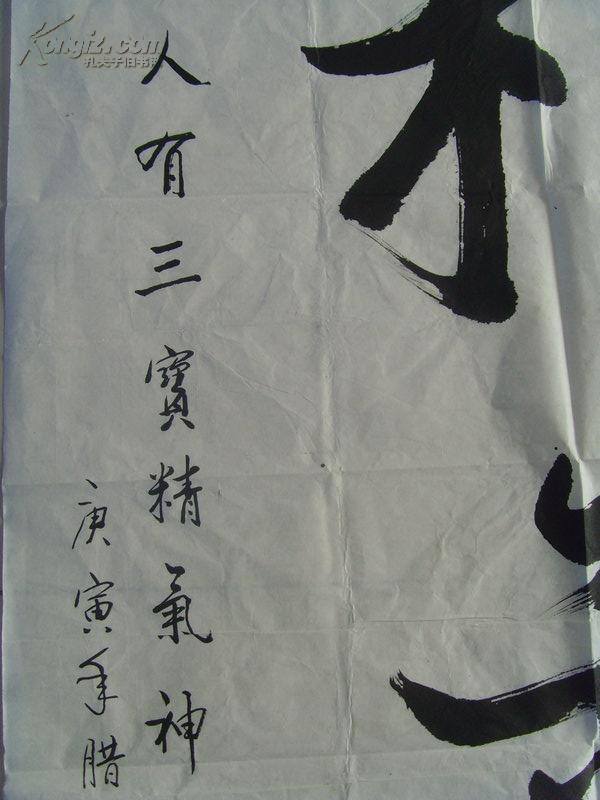 人有三寶精氣神
庚寅年腊
Kongfz.com
孔夫子旧书网